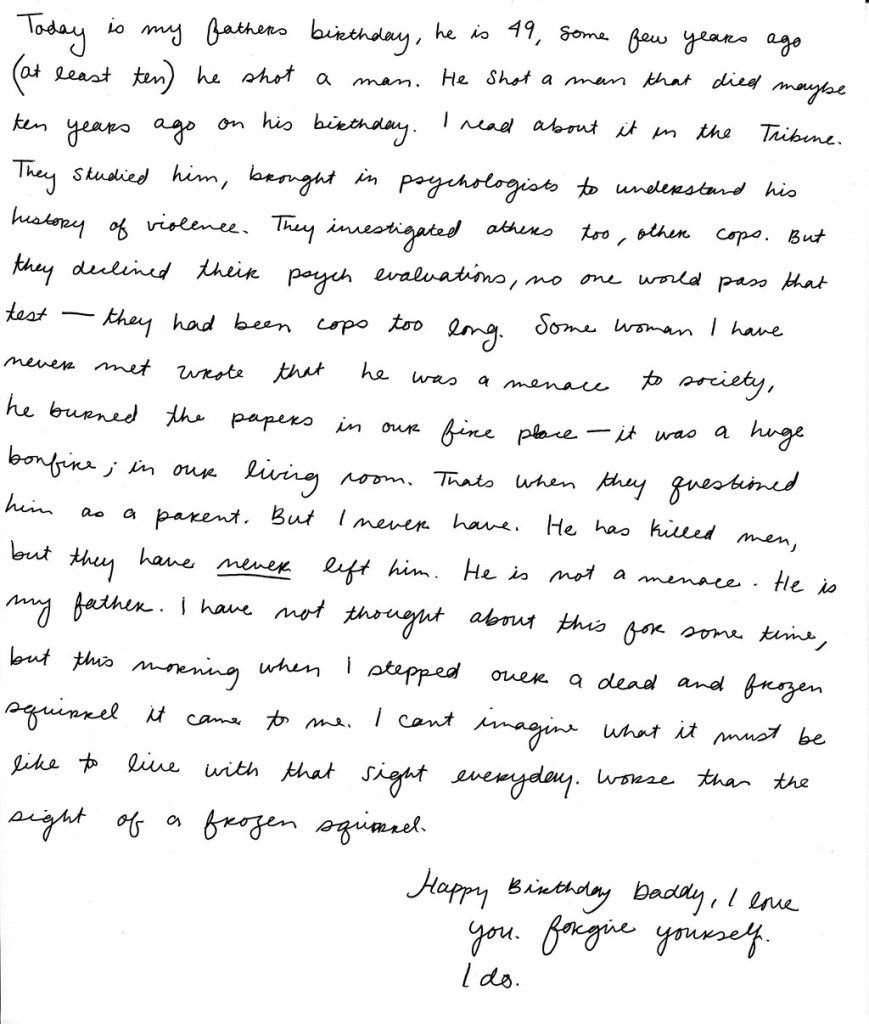 Today is my fathers birthday, he is 49, some few years ago
(at least ten) he shot a man. He shot a man that died maybe
ten years ago on his birthday. I read about it in the Tribune.
They studied him, brought in psychologists to understand his
history of violence. They investigated others too, other cops. But
they declined their psych evaluations, no one would pass that
test — they had been cops too long. Some woman I have
never met wrote that he was a menace to society,
he burned the papers in our fire place — it was a huge
bonfire; in our living room. Thats when they questioned
him as a parent. But I never have. He has killed men,
but they have never left him. He is not a menace. He is
my father. I have not thought about this for some time,
but this morning when I stepped over a dead and frozen
squirrel it came to me. I cant imagine what it must be
like to live with that sight everyday. Worse than the
sight of a frozen squirrel.
Happy Birthday Daddy, I love
you. forgive yourself.
I do.